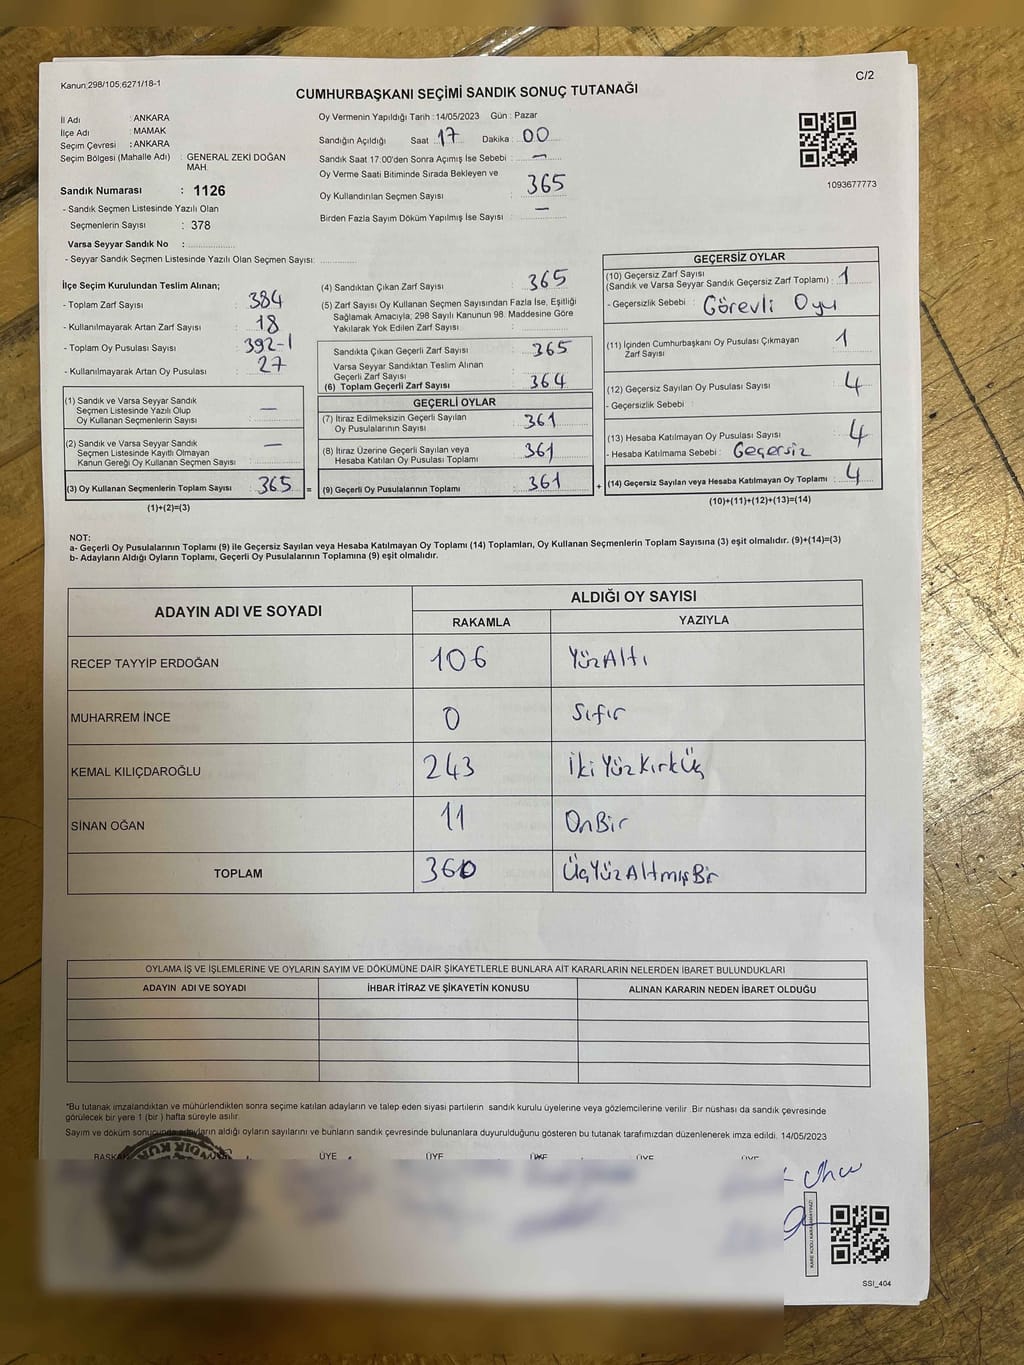 Kanun:298/105:6271/18-1
C/2
CUMHURBAŞKANI SEÇİMİ SANDIK SONUÇ TUTANAĞI
İl Adı : ANKARA
İlçe Adı : MAMAK
Seçim Çevresi : ANKARA
Seçim Bölgesi (Mahalle Adı) : GENERAL ZEKİ DOĞAN MAH.
Sandık Numarası : 1126
- Sandık Seçmen Listesinde Yazılı Olan
Seçmenlerin Sayısı : 378
Varsa Seyyar Sandık No :
- Seyyar Sandık Seçmen Listesinde Yazılı Olan Seçmen Sayısı:
Oy Vermenin Yapıldığı Tarih : 14/05/2023 Gün : Pazar
Sandığın Açıldığı Saat : 17 Dakika : 00
Sandık Saat 17:00'den Sonra Açımış İse Sebebi : —
Oy Verme Saati Bitiminde Sırada Bekleyen ve
Oy Kullandırılan Seçmen Sayısı : 365
Birden Fazla Sayım Döküm Yapılmış İse Sayısı : —
1093677773
İlçe Seçim Kurulundan Teslim Alınan;
- Toplam Zarf Sayısı : 384
- Kullanılmayarak Artan Zarf Sayısı : 18
- Toplam Oy Pusulası Sayısı : 392-1
- Kullanılmayarak Artan Oy Pusulası : 27
(1) Sandık ve Varsa Seyyar Sandık
Seçmen Listesinde Yazılı Olup
Oy Kullanan Seçmenlerin Sayısı : —
(2) Sandık ve Varsa Seyyar Sandık
Seçmen Listesinde Kayıtlı Olmayan
Kanun Gereği Oy Kullanan Seçmen Sayısı : —
(3) Oy Kullanan Seçmenlerin Toplam Sayısı : 365 =
(1)+(2)=(3)
(4) Sandıktan Çıkan Zarf Sayısı : 365
(5) Zarf Sayısı Oy Kullanan Seçmen Sayısından Fazla İse, Eşitliği
Sağlamak Amacıyla, 298 Sayılı Kanunun 98. Maddesine Göre
Yakılarak Yok Edilen Zarf Sayısı :
Sandıkta Çıkan Geçerli Zarf Sayısı : 365
Varsa Seyyar Sandıktan Teslim Alınan
Geçerli Zarf Sayısı :
(6) Toplam Geçerli Zarf Sayısı : 364
GEÇERLİ OYLAR
(7) İtiraz Edilmeksizin Geçerli Sayılan
Oy Pusulalarının Sayısı : 361
(8) İtiraz Üzerine Geçerli Sayılan veya
Hesaba Katılan Oy Pusulası Toplamı : 361
(9) Geçerli Oy Pusulalarının Toplamı : 361 +
GEÇERSİZ OYLAR
(10) Geçersiz Zarf Sayısı
(Sandık ve Varsa Seyyar Sandık Geçersiz Zarf Toplamı) : 1
- Geçersizlik Sebebi : Görevli Oyu
(11) İçinden Cumhurbaşkanı Oy Pusulası Çıkmayan
Zarf Sayısı : 1
(12) Geçersiz Sayılan Oy Pusulası Sayısı : 4
- Geçersizlik Sebebi :
(13) Hesaba Katılmayan Oy Pusulası Sayısı : 4
- Hesaba Katılmama Sebebi : Geçersiz
(14) Geçersiz Sayılan veya Hesaba Katılmayan Oy Toplamı : 4
(10)+(11)+(12)+(13)=(14)
NOT:
a- Geçerli Oy Pusulalarının Toplamı (9) ile Geçersiz Sayılan veya Hesaba Katılmayan Oy Toplamı (14) Toplamları, Oy Kullanan Seçmenlerin Toplam Sayısına (3) eşit olmalıdır. (9)+(14)=(3)
b- Adayların Aldığı Oyların Toplamı, Geçerli Oy Pusulalarının Toplamına (9) eşit olmalıdır.
ADAYIN ADI VE SOYADI
ALDIĞI OY SAYISI
RAKAMLA YAZIYLA
RECEP TAYYİP ERDOĞAN 106 YüzAltı
MUHARREM İNCE 0 Sıfır
KEMAL KILIÇDAROĞLU 243 İkiYüzKırkÜç
SİNAN OĞAN 11 OnBir
TOPLAM 360 ÜçYüzAltmışBir
OYLAMA İŞ VE İŞLEMLERİNE VE OYLARIN SAYIM VE DÖKÜMÜNE DAİR ŞİKAYETLERLE BUNLARA AİT KARARLARIN NELERDEN İBARET BULUNDUKLARI
ADAYIN ADI VE SOYADI İHBAR İTİRAZ VE ŞİKAYETİN KONUSU ALINAN KARARIN NEDEN İBARET OLDUĞU
*Bu tutanak imzalandıktan ve mühürlendikten sonra seçime katılan adayların ve talep eden siyasi partilerin sandık kurulu üyelerine veya gözlemcilerine verilir. Bir nüshası da sandık çevresinde
görülecek bir yere 1 (bir ) hafta süreyle asılır.
Sayım ve döküm sonucunda adayların aldığı oyların sayılarını ve bunların sandık çevresinde bulunanlara duyurulduğunu gösteren bu tutanak tarafımızdan düzenlenerek imza edildi. 14/05/2023
ÜYE ÜYE ÜYE ÜYE ÜYE
SSI_404